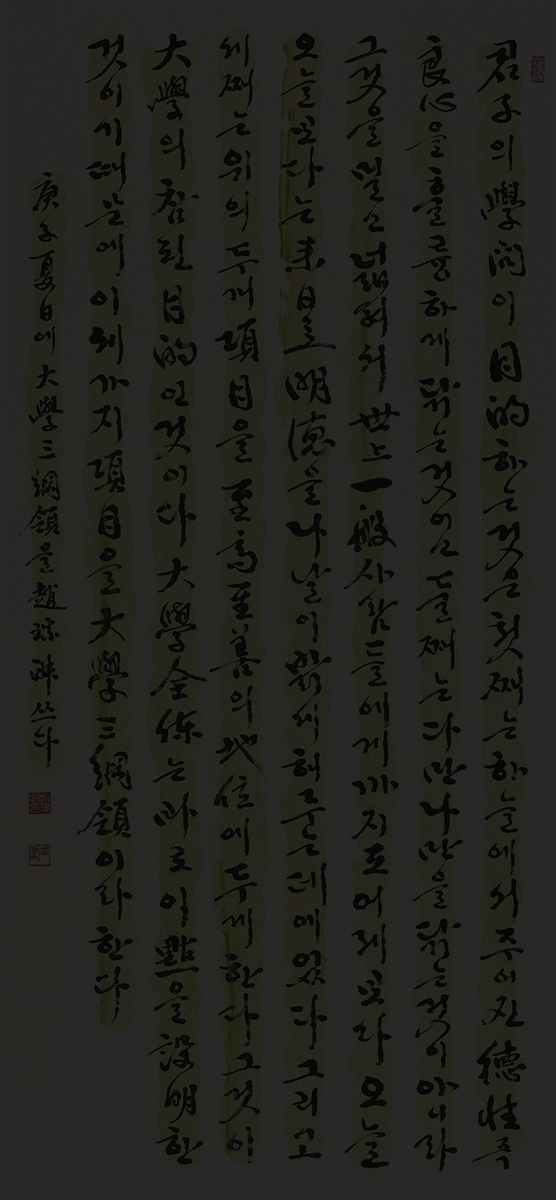 君子의 學問이 目的하는것은 첫째는 하늘에서 주어진 德性 즉
良心을 훌륭하게 닦는것이고 둘째는 다만 나만을 닦는것이 아니라
그것을 밀고 넓혀서 世上 一般사람들에게까지도 어제보다 오늘
오늘보다는 未日로 明德을 나날이 밝혀 준데에 있다 그리고
세째는 위의 두개 項目을 至高至善의 地位에 두게한다 그것이
大學의 참된 目的인것이다 大學全體는 바로 이 點을 設明한
것이기 때문에 이 세가지 項目을 大學 三綱領이라 한다
庚子夏日에 大學 三綱領을 趙 쓰다